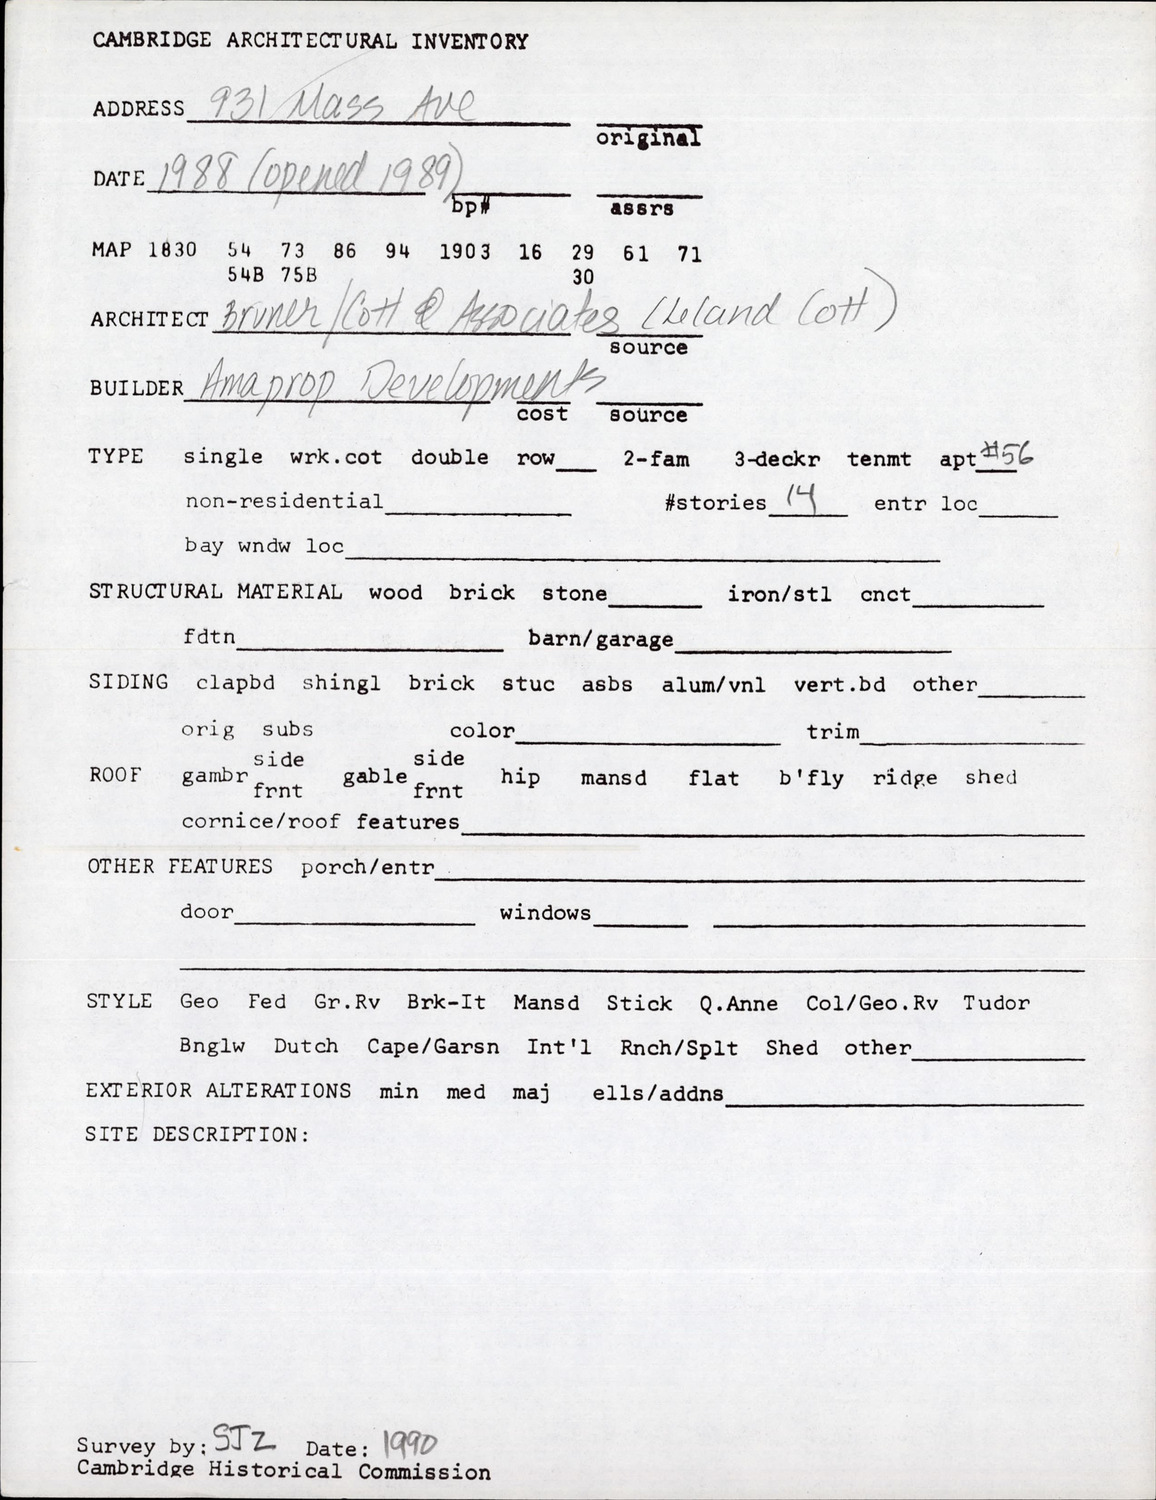 CAMBRIDGE ARCHITECTURAL INVENTORY
ADDRESS 931 Mass Ave
original
DATE 1988 (opened 1989)
bp# assrs
MAP 1830 54 73 86 94 1903 16 29 61 71
54B 75B 30
ARCHITECT Bruner/Cott & Associates (Leland Cott)
source
BUILDER Amaprop Developments
cost source
TYPE single wrk.cot double row___ 2-fam 3-deckr tenmt apt #56
non-residential___ #stories 14 entr loc___
bay wndw loc___
STRUCTURAL MATERIAL wood brick stone___ iron/stl cnct___
fdtn___ barn/garage___
SIDING clapbd shingl brick stuc asbs alum/vnl vert.bd other___
orig subs color___ trim___
side side
ROOF gambr gable hip mansd flat b'fly ridge shed
frnt frnt
cornice/roof features___
OTHER FEATURES porch/entr___
door___ windows___
STYLE Geo Fed Gr.Rv Brk-It Mansd Stick Q.Anne Col/Geo.Rv Tudor
Bnglw Dutch Cape/Garsn Int'l Rnch/Splt Shed other___
EXTERIOR ALTERATIONS min med maj ells/addns___
SITE DESCRIPTION:
Survey by: SJZ Date: 1990
Cambridge Historical Commission